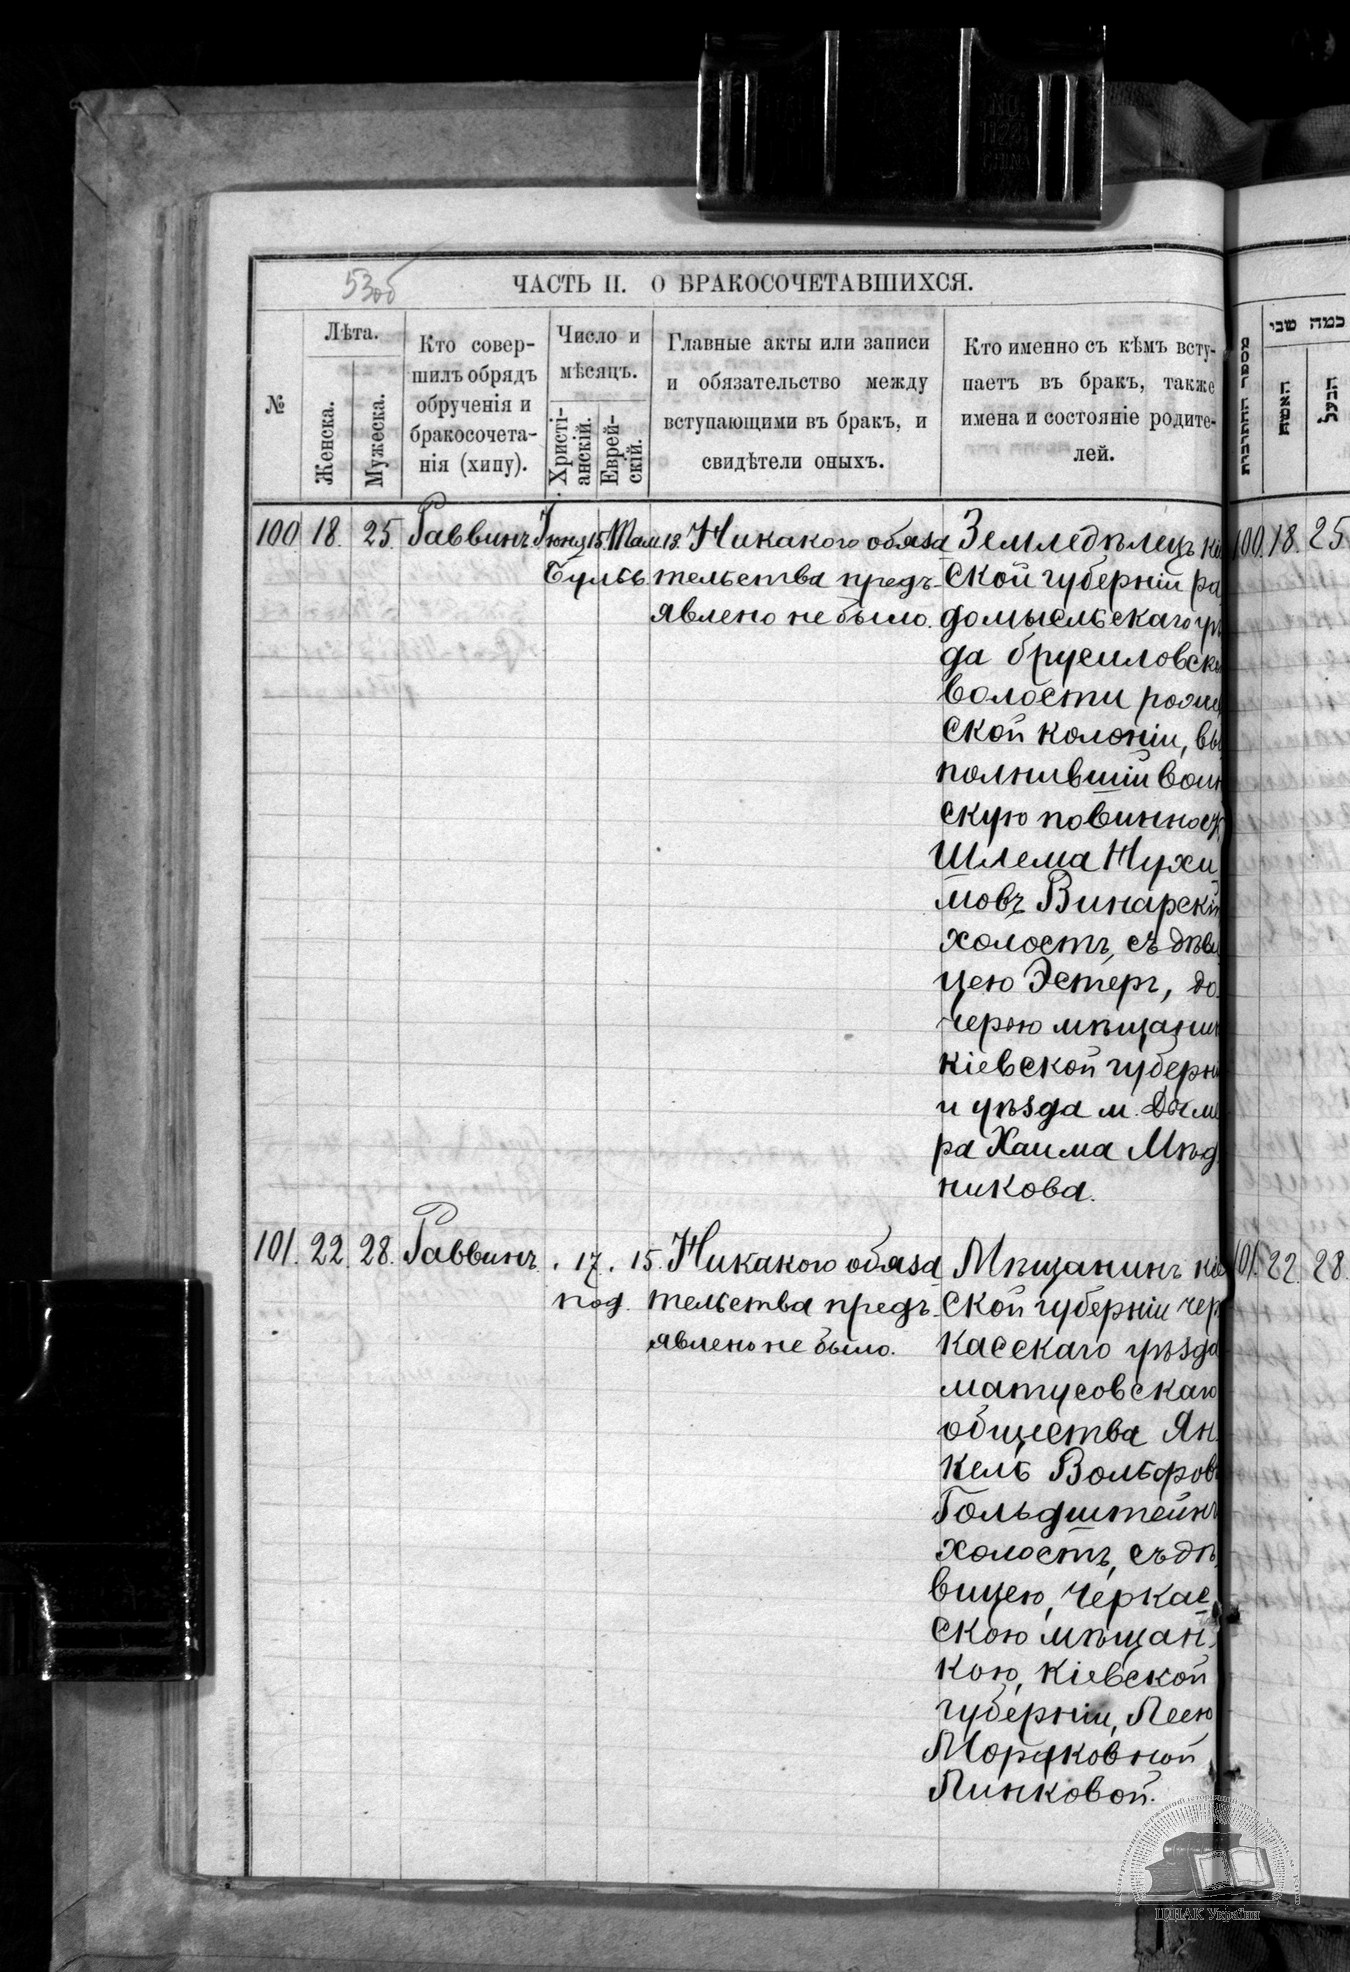 53об
ЧАСТЬ II. О БРАКОСОЧЕТАВШИХСЯ.
№
Лѣта.
Женска.
Мужеска.
Кто совер-
шилъ обрядъ
обрученія и
бракосочета-
нія (хипу).
Число и
мѣсяцъ.
Христі-
анскій.
Еврей-
скій.
Главные акты или записи
и обязательство между
вступающими въ бракъ, и
свидѣтели оныхъ.
Кто именно съ кѣмъ всту-
паетъ въ бракъ, также
имена и состояніе родите-
лей.
מספר החתונות
כמה שני
האשה
הבעל
100 18. 25. Раввинъ Іюня 15. Там 13. Никакого обяза Земледѣлецъ кіе
тельства предъ- ской губерніи ра
явлено не было. домысльскаго уѣ
да брусиловск
волости
ской колоніи, вы
полнившій воин
скую повинност
Шлема Нухи
мовъ Винарскій
холостъ, съ дѣви
цею Эстеръ, до
черью мѣщанин
кіевской губерні
и уѣзда м. Дыме
ра Хаима Мѣд
никова.
101. 22. 28. Раввинъ . 17. . 15. Никакого обяза Мѣщанинъ кіе
под. тельства предъ- ской губерніи чер
явлено не было. касскаго уѣзда
матусовскаго
общества Ян
кель Вольфовъ
Гольдштейнъ
холостъ, съ дѣ
вицею, черкас
скою мѣщан
кою, кіевской
губерніи, Леею
Мордковной
Линковой.
100. 18. 25
101. 22. 28.
ЦДІАК України